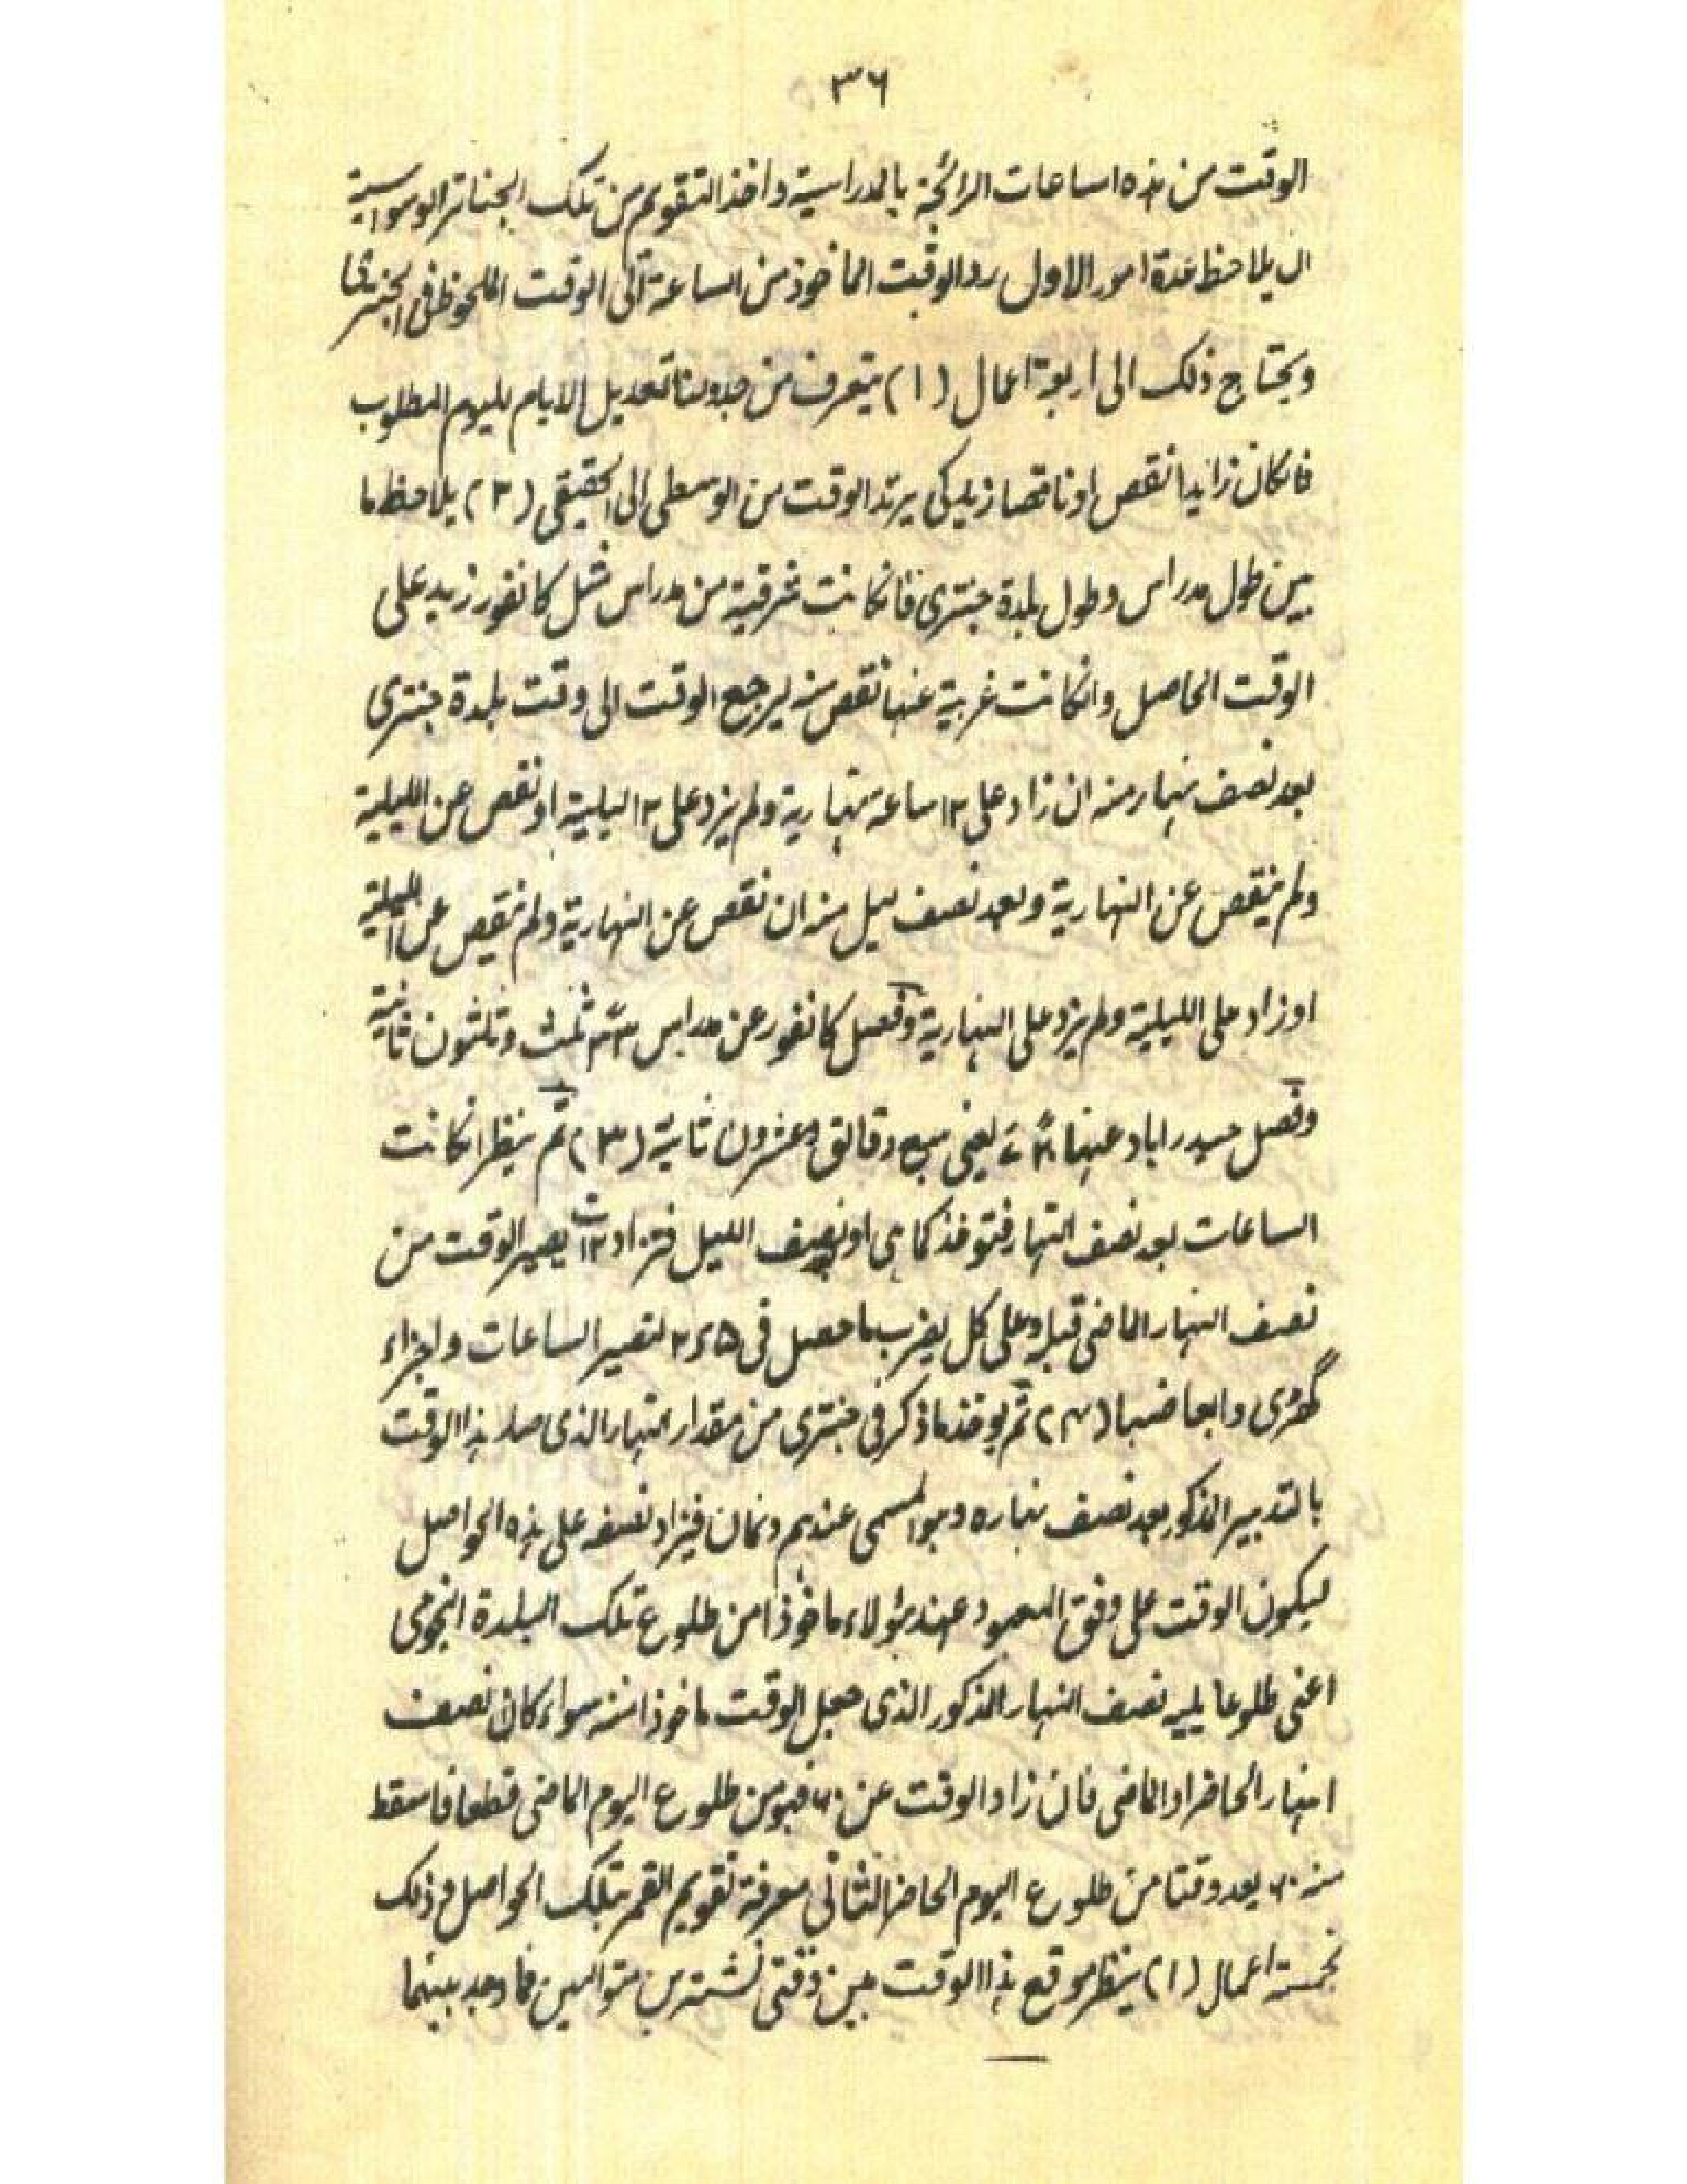 ٣٦
الوقت من هذه الساعات الرائجة بالمدراسية واخذ التقويم من تلك الجناتر الوسواسية
ان يلاحظ عدة امور الاول رد الوقت الماخوذ من الساعة الى الوقت الملحوظ فى
ويحتاج ذلك الى اربعة اعمال (١) يتعرف من جدولنا تعديل الايام لليوم المطلوب
فانكان زايدا نقص او ناقصا زيد كى يرتد الوقت من الوسطى الى الحقيقى (٢) يلاحظ ما
بين طول مدراس وطول بلدة جنترى فانكانت شرقية من مدراس مثل كانفور زيد على
الوقت الحاصل وانكانت غربية عنها نقص منه ليرجع الوقت الى وقت بلدة جنترى
بعد نصف نهار منه ان زاد على ١٢ ساعة نهارية ولم يزد على ١٢ ليلية او نقص عن الليلية
ولم ينقص عن النهارية وبعد نصف ليل منه ان نقص عن النهارية ولم ينقص عن الليلية
او زاد على الليلية ولم يزد على النهارية وفصل كانفور عن مدراس ثلث وثلثون ثانية
وفصل حيدراباد عنها يعنى سبع دقائق وعشرون ثانية (٣) ثم ينظر انكانت
الساعات بعد نصف النهار فتوخذ كما هى او نصف الليل فتزاد ١٢ يصير الوقت من
نصف النهار الماضى قبله وعلى كل يضرب ما حصل فى ٢٫٥ لتصير الساعات واجزاء
گھڑى وابعاضها (٤) ثم يوخذ ما ذكر فى جنترى من مقدار النهار الذى صار هذا الوقت
بالتدبير المذكور بعد نصف نهاره وهو المسمى عندهم دنمان فيزاد نصفه على هذه الحواصل
ليكون الوقت على وفق المعهود عند هؤلاء ماخوذا من طلوع تلك البلدة النجومى
اعنى طلوعا يليه نصف النهار المذكور الذى جعل الوقت ماخوذا منه سواء كان نصف
النهار الحاضر او الماضى فان زاد الوقت عن ٦٠ فهو من طلوع اليوم الماضى قطعا فاسقط
منه ٦٠ يعد وقتا من طلوع اليوم الحاضر الثانى معرفة تقويم القمر بتلك الحواصل وذلك
بخمسة اعمال (١) ينظر موقع هذا الوقت بين وقتى نشترين متواليين فما وجد بينهما